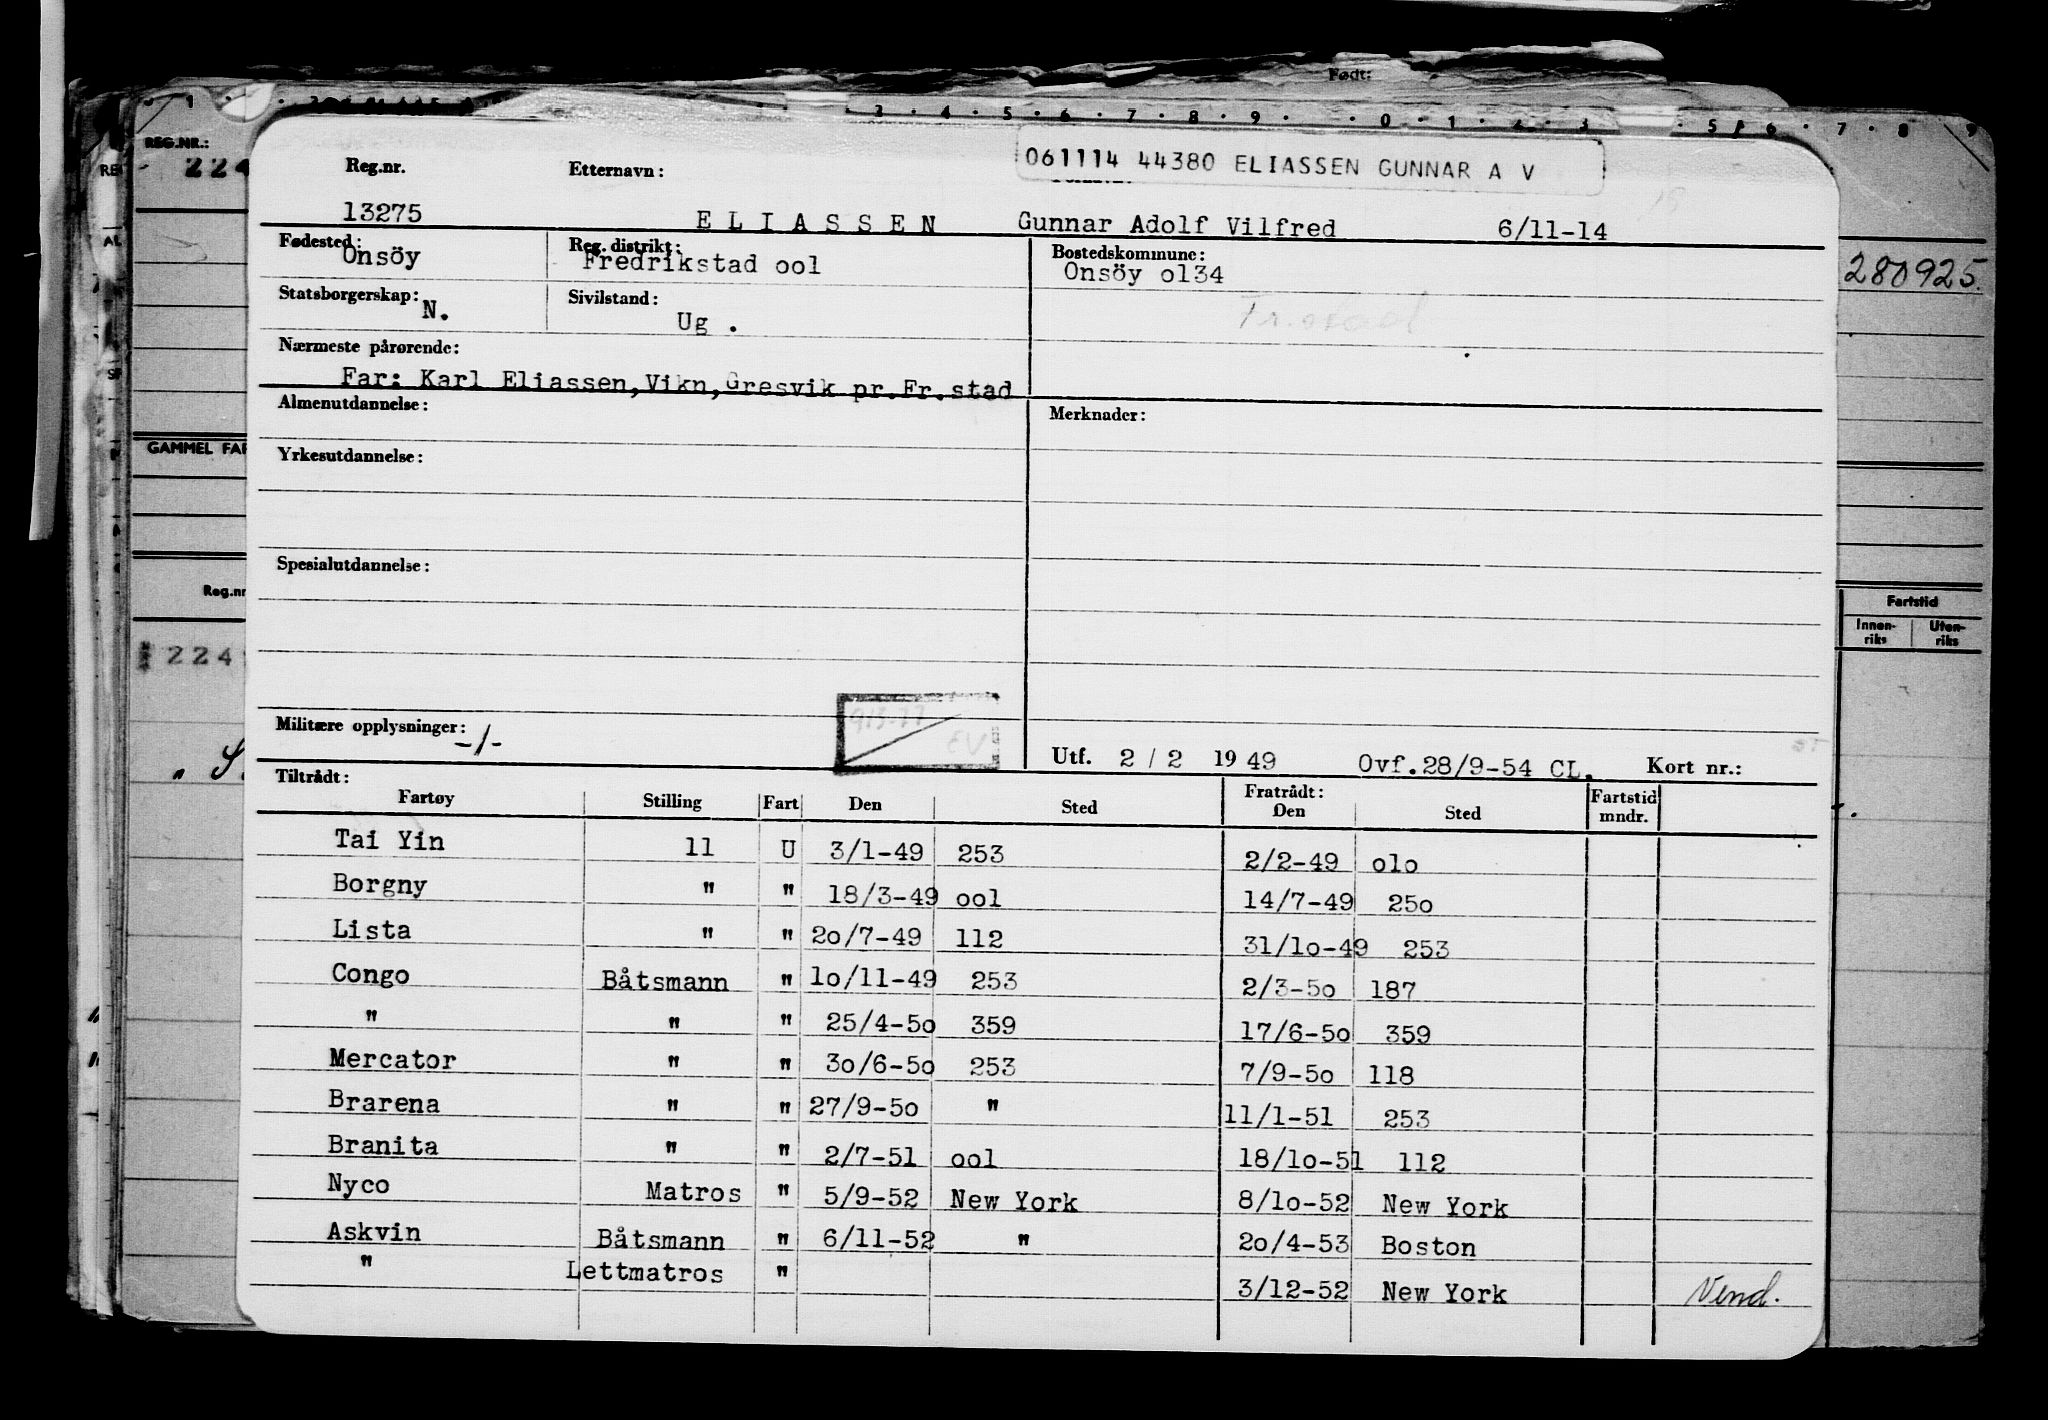 Født:
1 3 4 5 6 7 8 9 0 1 2 3 5 6 7 8 9
REG.NR.:
224
061114 44380 ELIASSEN GUNNAR A V
Reg.nr. Etternavn:
13275 ELIASSEN Gunnar Adolf Vilfred 6/11-14
Fødested: Reg. distrikt: Bostedskommune:
Onsöy Fredrikstad ool Onsöy ol34
280925.
Statsborgerskap: Sivilstand:
N. Ug .
Fr.stad
Nærmeste pårørende:
Far: Karl Eliassen,Vikn,Gresvik pr.Fr.stad
Almenutdannelse: Merknader:
GAMMEL FAR
Yrkesutdannelse:
Spesialutdannelse:
Reg.nr
Fartstid
Innen-riks Uten-riks
224
Militære opplysninger: -/-
913-77
EV
Utf. 2 / 2 1949 Ovf.28/9-54 CL. Kort nr.:
Tiltrådt: Fratrådt:
Fartøy Stilling Fart Den Sted Den Sted Fartstid mndr.
Tai Yin 11 U 3/1-49 253 2/2-49 olo
Borgny " " 18/3-49 ool 14/7-49 25o
Lista " " 2o/7-49 112 31/lo-49 253
Congo Båtsmann " lo/11-49 253 2/3-5o 187
" " " 25/4-5o 359 17/6-5o 359
Mercator " " 3o/6-5o 253 7/9-5o 118
Brarena " " 27/9-5o " 11/1-51 253
Branita " " 2/7-51 ool 18/lo-51 112
Nyco Matros " 5/9-52 New York 8/lo-52 New York
Askvin Båtsmann " 6/11-52 " 2o/4-53 Boston
" Lettmatros " 3/12-52 New York Vend.